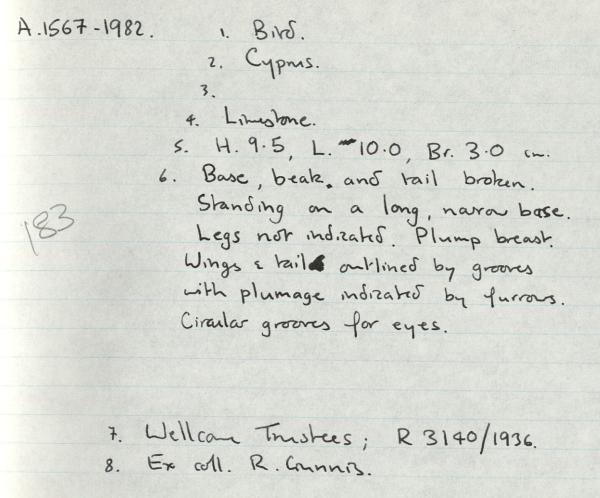 A.1567-1982.
1. Bird.
2. Cyprus.
3.
4. Limestone.
5. H. 9.5, L. 10.0, Br. 3.0 cm.
6. Base, beak, and tail broken.
Standing on a long, narrow base.
Legs not indicated. Plump breast.
Wings & tail outlined by grooves
with plumage indicated by furrows.
Circular grooves for eyes.
183
7. Wellcome Trustees; R 3140/1936.
8. Ex coll. R. Gunnis.